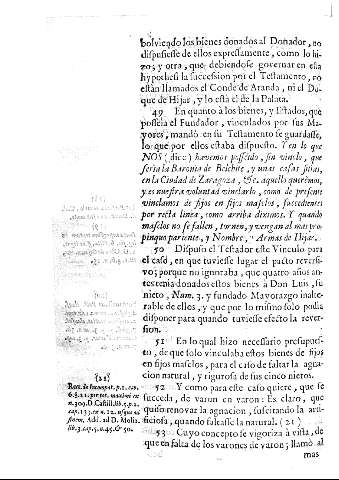 bolviendo los bienes donados al Donador, no
dispusiesse de ellos expressamente, como lo hi-
zo; y otra, que debiendose governar en esta
hypothesi la succession por el Testamento, no
están llamados el Conde de Aranda, ni el Du-
que de Hijar, y lo està el de la Palata.
49 En quanto à los bienes, y Estados, que
posseìa el Fundador, vinculados por sus Ma-
yores, mandò en su Testamento se guardasse,
lo que por ellos estaba dispuesto. Y en lo que
NOS (dice) havemos posseido, sin vinclo, que
seria la Baronia de Belchite, y unas casas sitias,
en la Ciudad de Zaragoza, &c. aquello queremos,
y es nuestra voluntad vinclarlo, como de presente
vinclamos de fijos en fijos masclos, succedientes
por recta linea, como arriba diximos. Y quando
masclos no se fallen, tornen, y vengan al mas pro-
pinquo pariente, y Nombre, y Armas de Hijar.
50 Dispuso el Testador este Vinculo para
el caso, en que tuviesse lugar el pacto reversi-
vo; porque no ignoraba, que quatro años an-
tes tenia donados estos bienes à Don Luis, su
nieto, Num. 3. y fundado Mayorazgo inalte-
rable de ellos, y que por lo mismo solo podia
disponer para quando tuviesse efecto la rever-
sion.
51 En lo qual hizo necessario presupues-
to, de que solo vinculaba estos bienes de fijos
en fijos masclos, para el caso de faltar la agna-
cion natural, y rigurosa de sus cinco nietos.
(21)
Rox. de Incompat. p. 1. cap.
6. §. 21. per tot. maximè en
n. 309. D. Castill. lib. 5. p. 2.
cap. 133. ex n. 12. usque ad
finem, Add. ad D. Molin.
lib. 3. cap. 5. n. 45. & 50.
52 Y como para este caso quiere, que se
succeda, de varon en varon: Es claro, que
quiso renovar la agnacion, suscitando la arti-
ficiosa, quando faltasse la natural. (21)
53 Cuyo concepto se vigoriza à vista, de
que en falta de los varones de varon; llamò al
mas